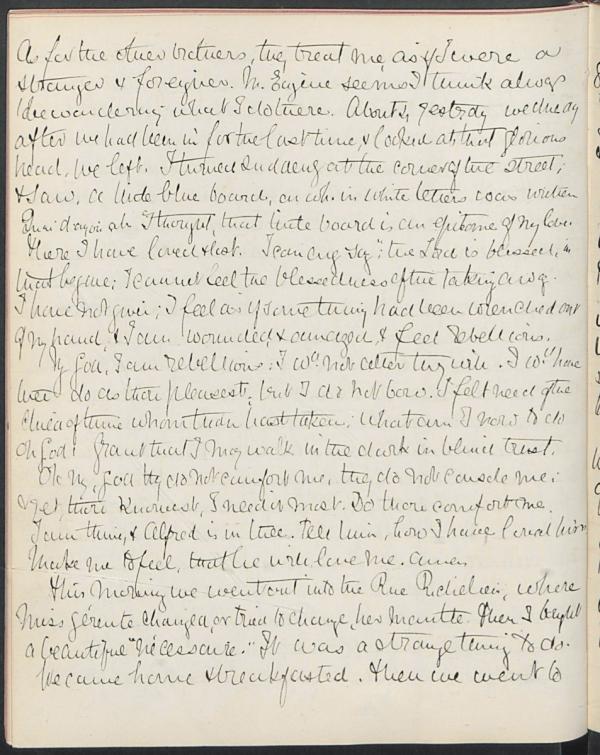 As for the other brothers, they treat me as if I were a
stranger & foreigner. M. Eugène seems I think always
wondering what I do there. About yesterday wednesday
after we had been in for the last time, & looked at that glorious
head, we left. I turned suddenly at the corner of the street,
& saw, a little blue board, on wh. in white letters was written
Quai d'orsay ah I thought, that little board is an epitome of my love.
There I have loved & lost. I can only say "the Lord is blessed, in
that he gave; I cannot feel the blessedness of the taking away.
I have not given; I feel as if something had been wrenched out
of my hand, & I am wounded & damaged, & feel rebellious.
My God, I am rebellious; I wd. not alter thy will. I wd. have
thee do as thou pleasest, but I do not bow. I felt need of the
child of thine whom thou hast taken; what am I now to do
Oh God! Grant that I may walk in the dark in blind trust.
Oh my God they do not comfort me, they do not console me;
& yet, thou knowest, I need it most. Do thou comfort me.
I am thine, & Alfred is in thee. Tell him, how I have loved him
Make me to feel, that he will love me. amen
This morning we went out into the Rue Richelieu, where
Miss gérente changed, or tried to change, her mantle. Then I bought
a beautiful "nécessaire." It was a strange thing to do.
We came home & breakfasted. Then we went to